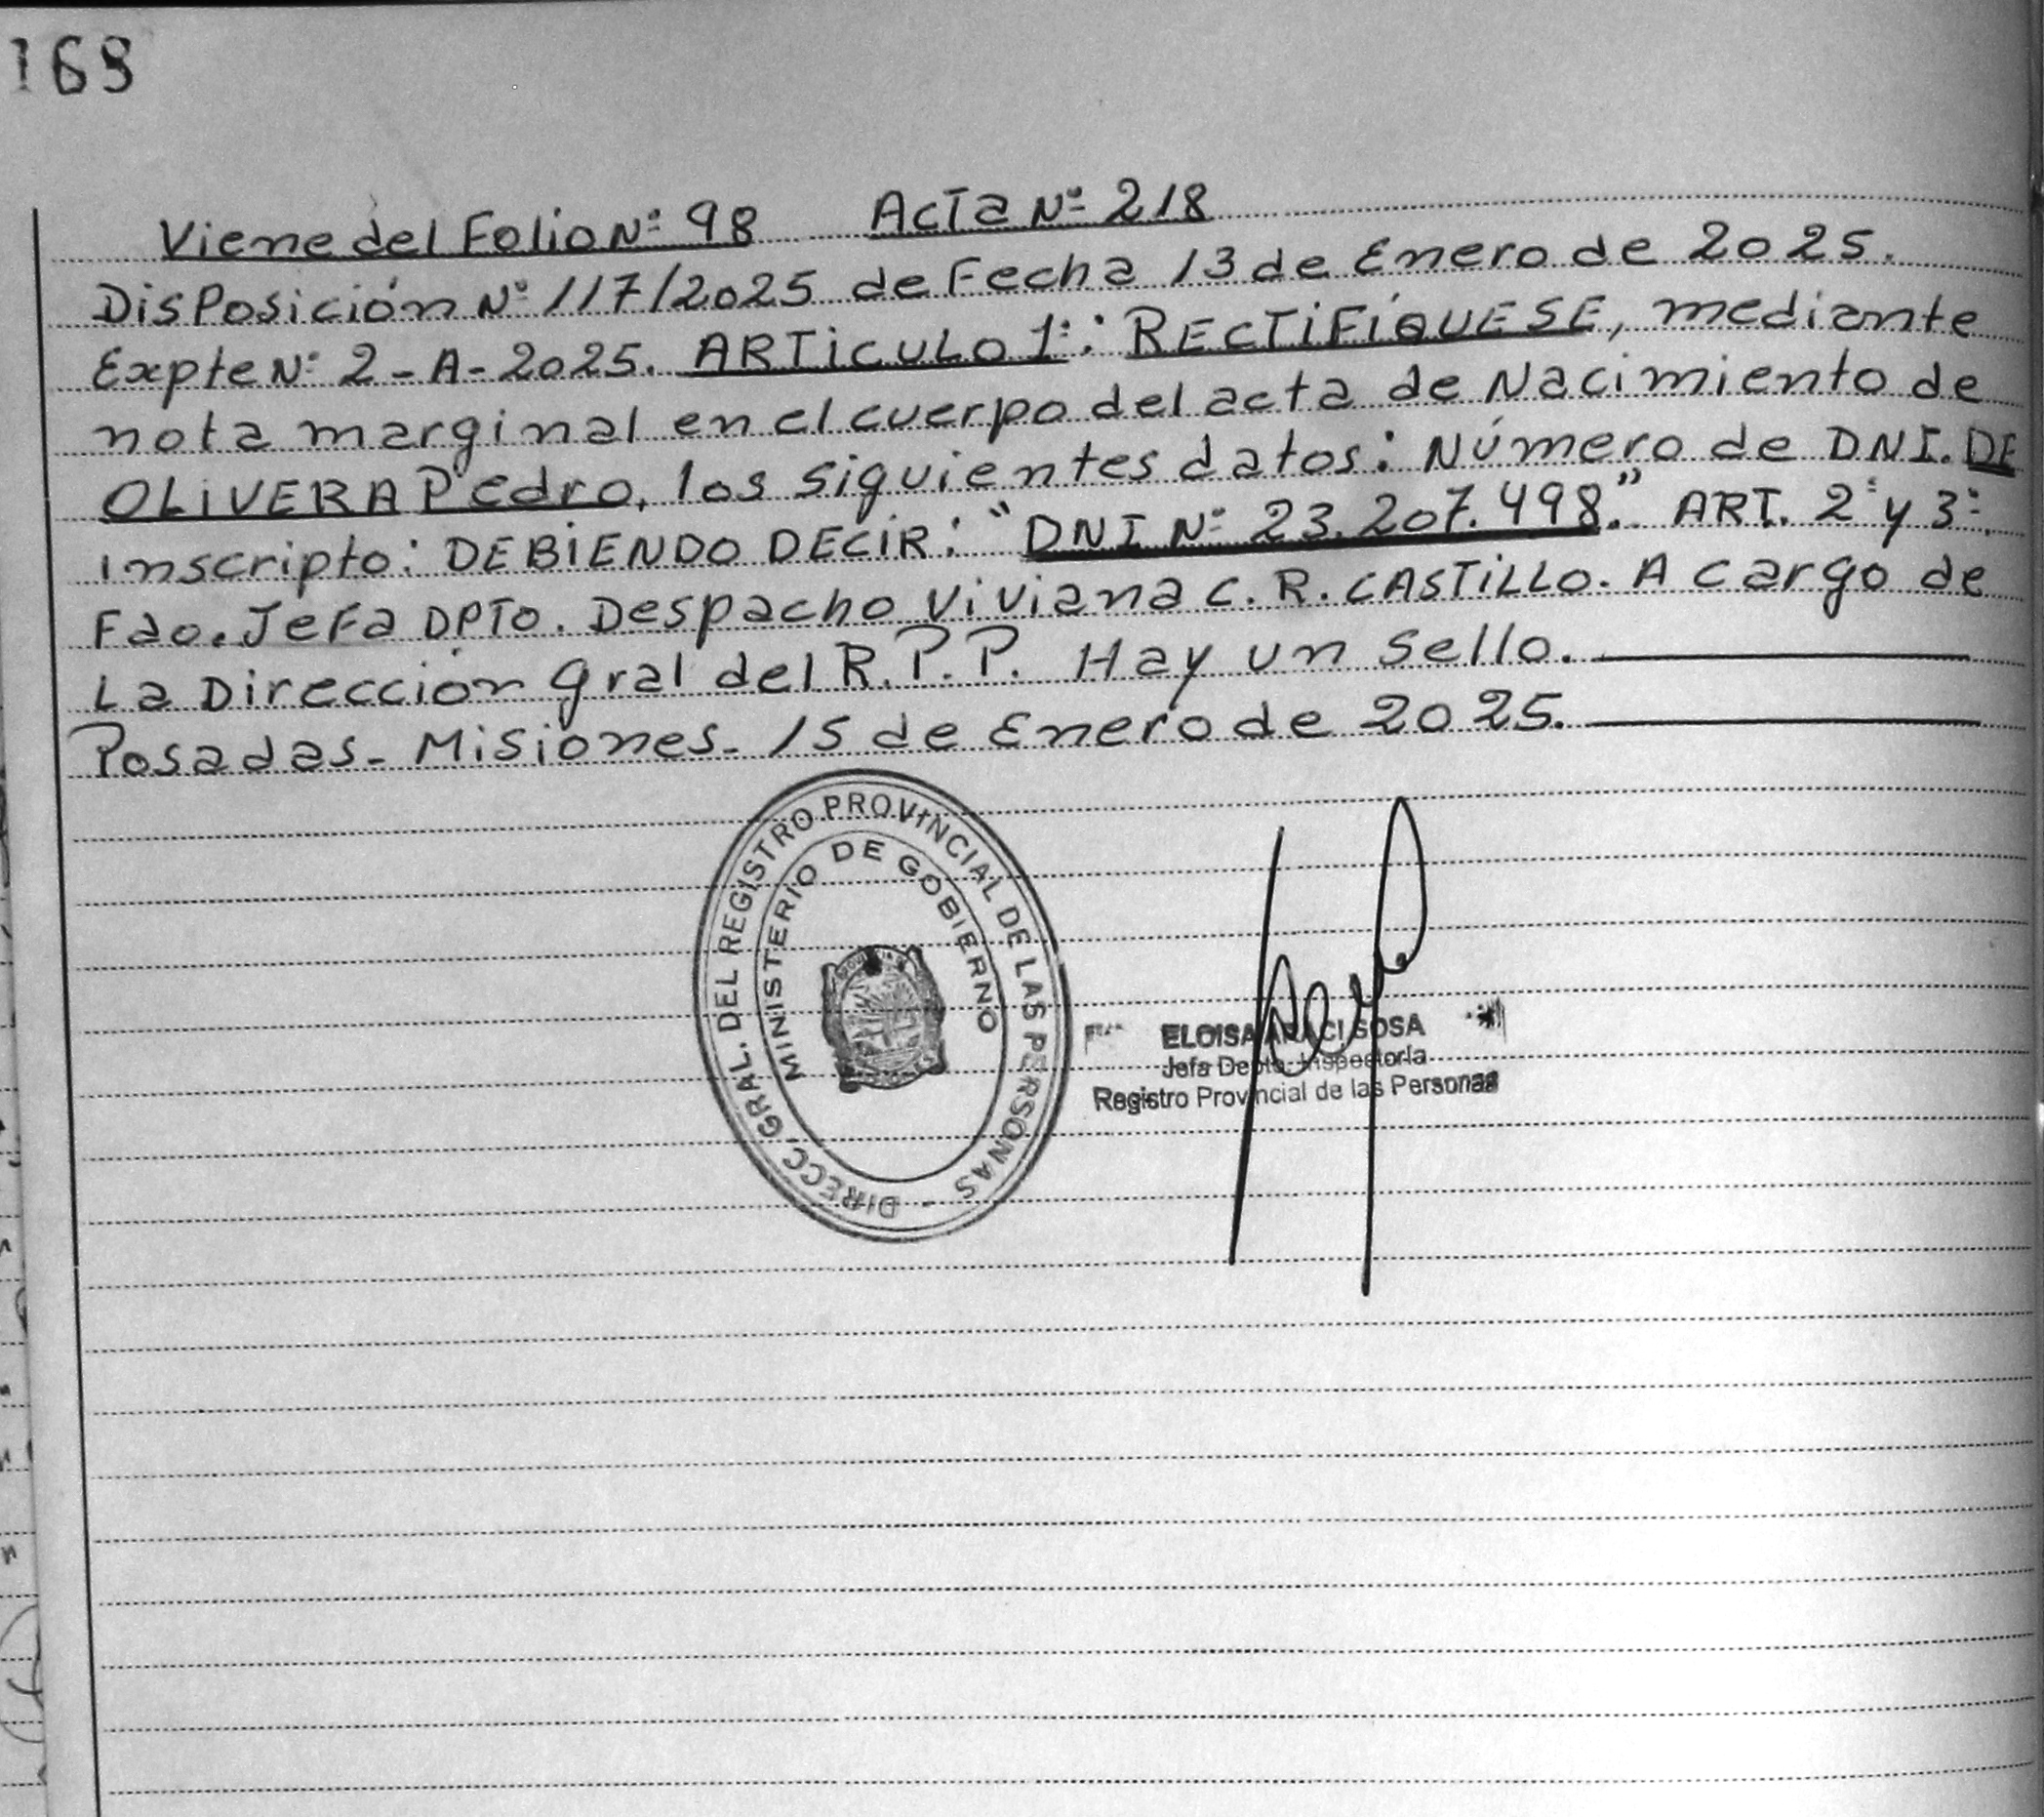 169
Viene del Folio Nº 98 Acta Nº 218
Disposición Nº 117/2025 de Fecha 13 de Enero de 2025.
Expte Nº 2-A-2025. ARTICULO 1º: RECTIFÍQUESE, mediante
nota marginal en el cuerpo del acta de Nacimiento de
OLIVERA Pedro, los siguientes datos: Número de DNI. DE
inscripto: DEBIENDO DECIR: "DNI Nº 23.207.498." ART. 2º y 3º.
Fdo. Jefa DPTO. Despacho Viviana C. R. CASTILLO. A cargo de
La Dirección Gral del R.P.P. Hay un sello.
Posadas - Misiones - 15 de Enero de 2025.
DIRECC. GRAL. DEL REGISTRO PROVINCIAL DE LAS PERSONAS -
MINISTERIO DE GOBIERNO
ELOISA ARACI SOSA
Jefa Depto. Inspectoría
Registro Provincial de las Personas